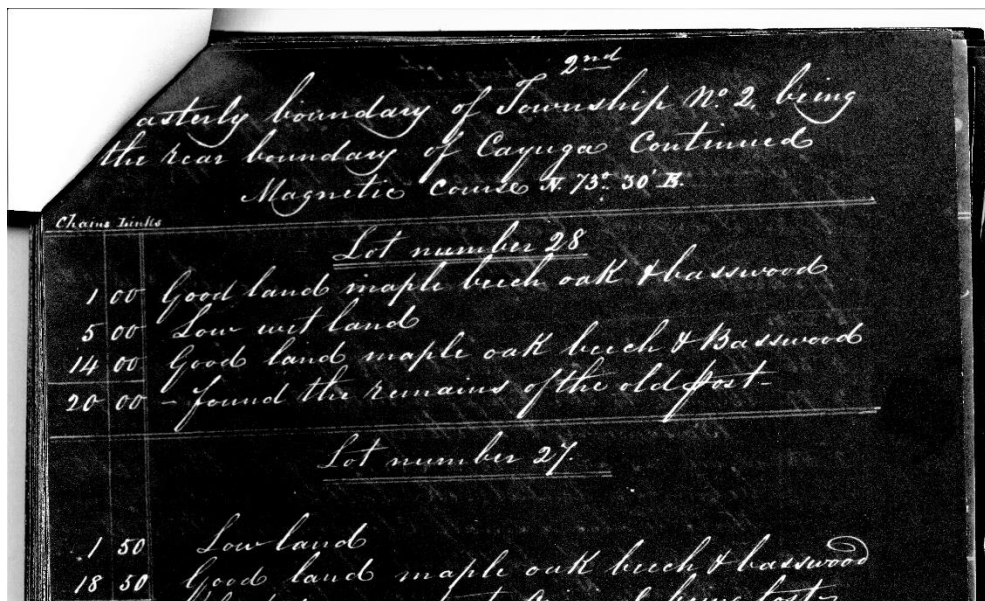 2nd
asterly boundary of Township No. 2, being
the rear boundary of Cayuga Continued
Magnetic Course N. 73° 30' E.
Chains Links
Lot number 28
1 00 Good land maple beech oak & basswood
5 00 Low wet land
14 00 Good land maple oak beech & Basswood
20 00 - found the remains of the old post-
Lot number 27.
1 50 Low land
18 50 Good land maple oak beech & basswood
being lost